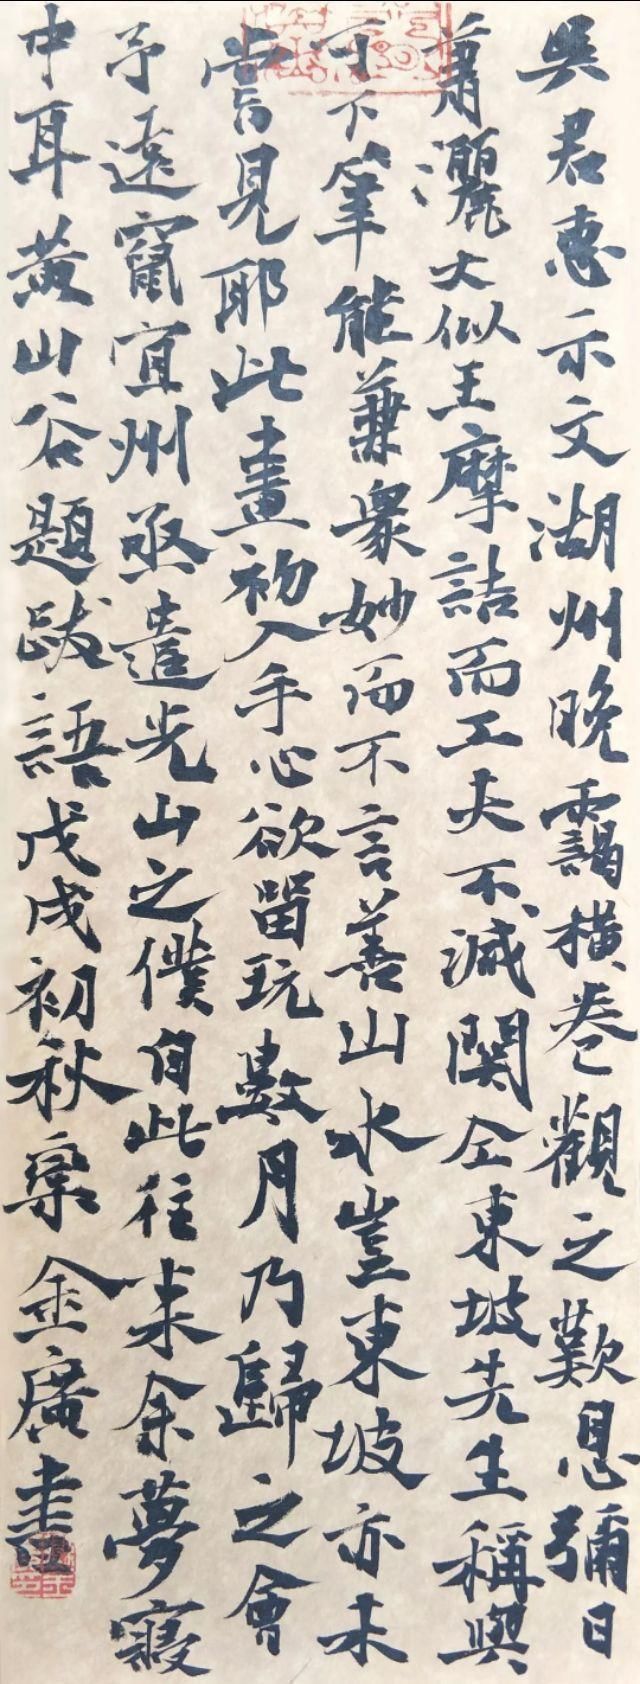 吳君惠示文湖州晚靄橫卷觀之歎息彌日
肅灑大似王摩詰而工夫不減関仝東坡先生稱與
可下筆能兼衆妙而不言善山水豈東坡亦未
嘗見耶此畫初入手心欲留玩數月乃歸之會
予遠竄宜州亟遣光山之僕自此往來余夢寢
中耳黃山谷題跋語戊戌初秋稟金廣書